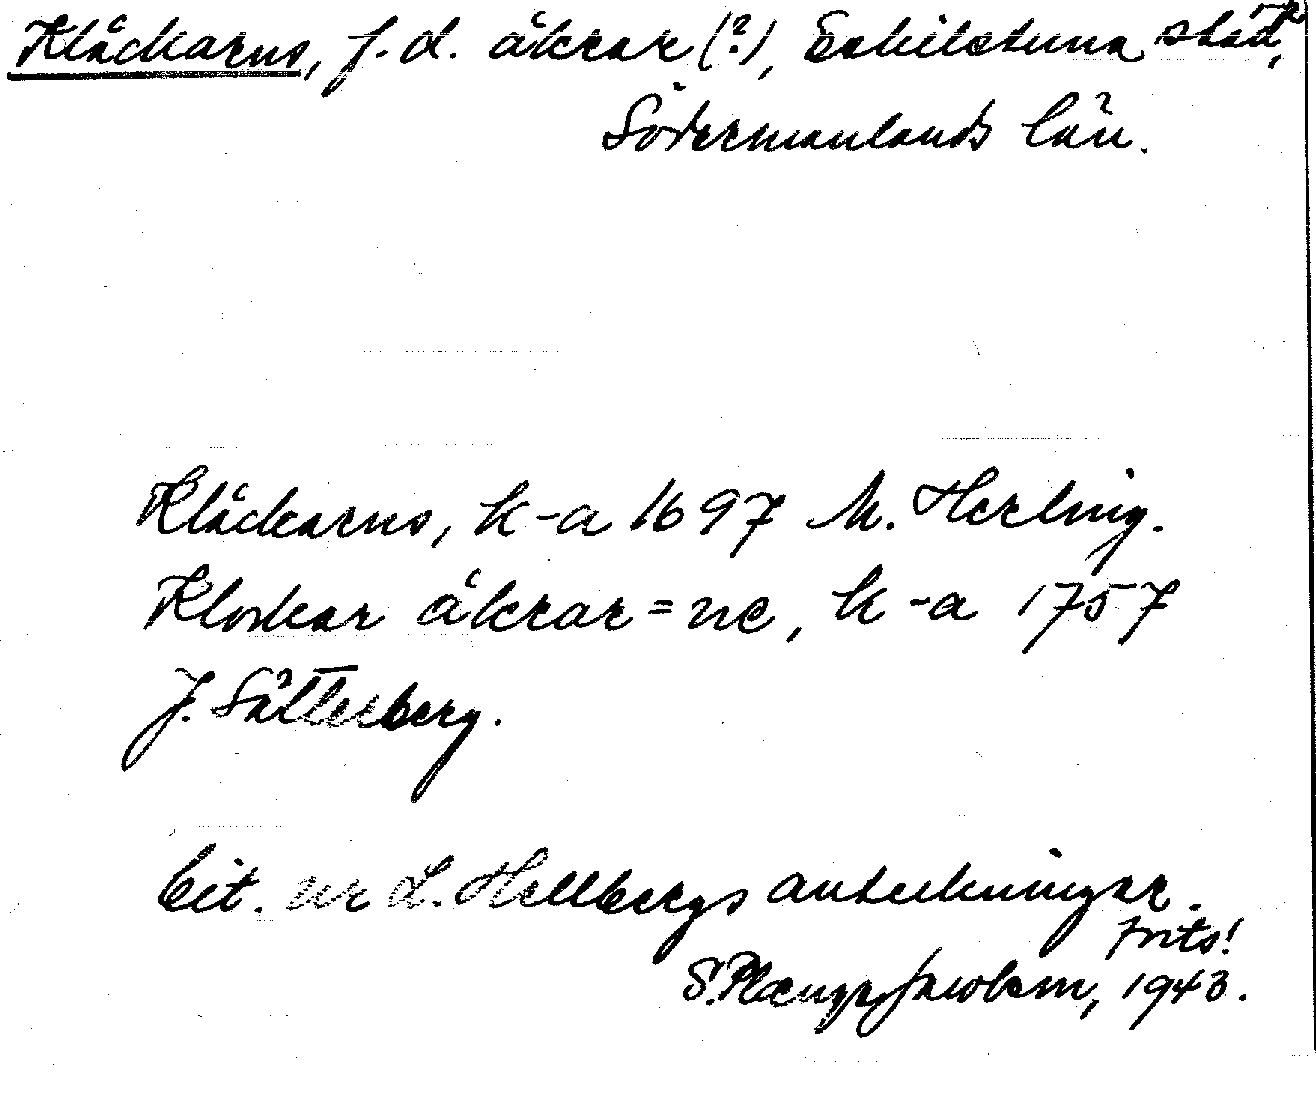 Kläckarns, f.d. åkrar (?), Eskilstuna stad,
Södermanlands län.
Kläckarns, k-a 1697 M. Herling.
Klockar åkrar = ne, k-a 1757
J. Sätterberg.
Cit. ur L. Hellbergs anteckningar.
forts!
S. Plænge Jacobson, 1943.